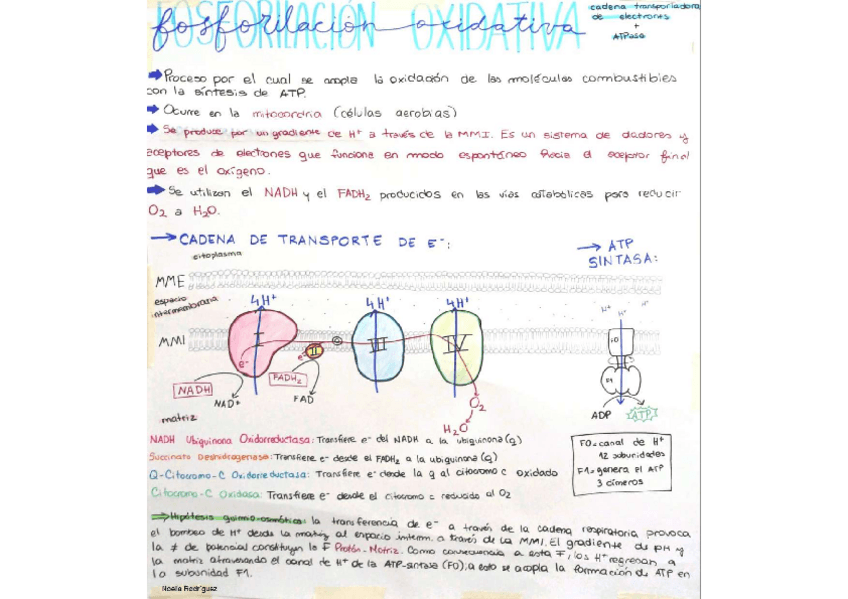 FOSFORILACIÓN OXIDATIVA
fosforilación oxidativa
cadena transportadora
de electrones
+
ATPasa
Proceso por el cual se acopla la oxidación de las moléculas combustibles
con la síntesis de ATP.
Ocurre en la mitocondria (células aerobias)
Se produce por un gradiente de H+ a través de la MMI. Es un sistema de dadores y
aceptores de electrones que funciona en modo espontáneo hacia el aceptor final
que es el oxígeno.
Se utilizan el NADH y el FADH2 producidos en las vías catabólicas para reducir
O2 a H2O.
CADENA DE TRANSPORTE DE E-:
ATP
SINTASA:
citoplasma
MME
espacio
intermembrana
4H+ 4H+ 4H+
H+ H+ H+
MMI
I II Q III IV
e- e-
FO
F1
NADH
NAD+
FADH2
FAD
O2
H2O
ADP ATP
matriz
NADH Ubiquinona Oxidorreductasa: Transfiere e- del NADH a la ubiquinona (q)
Succinato Deshidrogenasa: Transfiere e- desde el FADH2 a la ubiquinona (q)
Q-Citocromo-C Oxidorreductasa: Transfiere e- desde la q al citocromo c oxidado
Citocromo-C Oxidasa: Transfiere e- desde el citocromo c reducido al O2
FO=canal de H+
12 subunidades
F1=genera el ATP
3 dímeros
Hipótesis quimio-osmótica: la transferencia de e- a través de la cadena respiratoria provoca
el bombeo de H+ desde la matriz al espacio interm. a través de la MMI. El gradiente de pH y
la ≠ de potencial constituyen la F Protón-Motriz. Como consecuencia a esta F, los H+ regresan a
la matriz atravesando el canal de H+ de la ATP-sintasa (FO), a esto se acopla la formación de ATP en
la subunidad F1.
Noelia Rodríguez